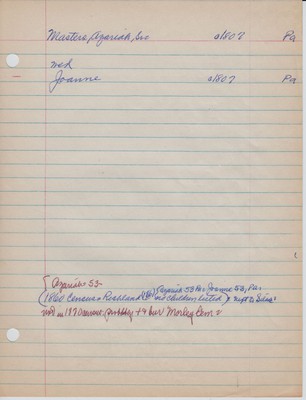 Masters, Azariah, Sr. a1807 Pa
md
Joanne a1807 Pa
Azariah 53
(1860 Census Richland Azariah 53 Pa Joanne 53, Pa
no children listed)
not in 1870 census, probably + bur Morley Cem